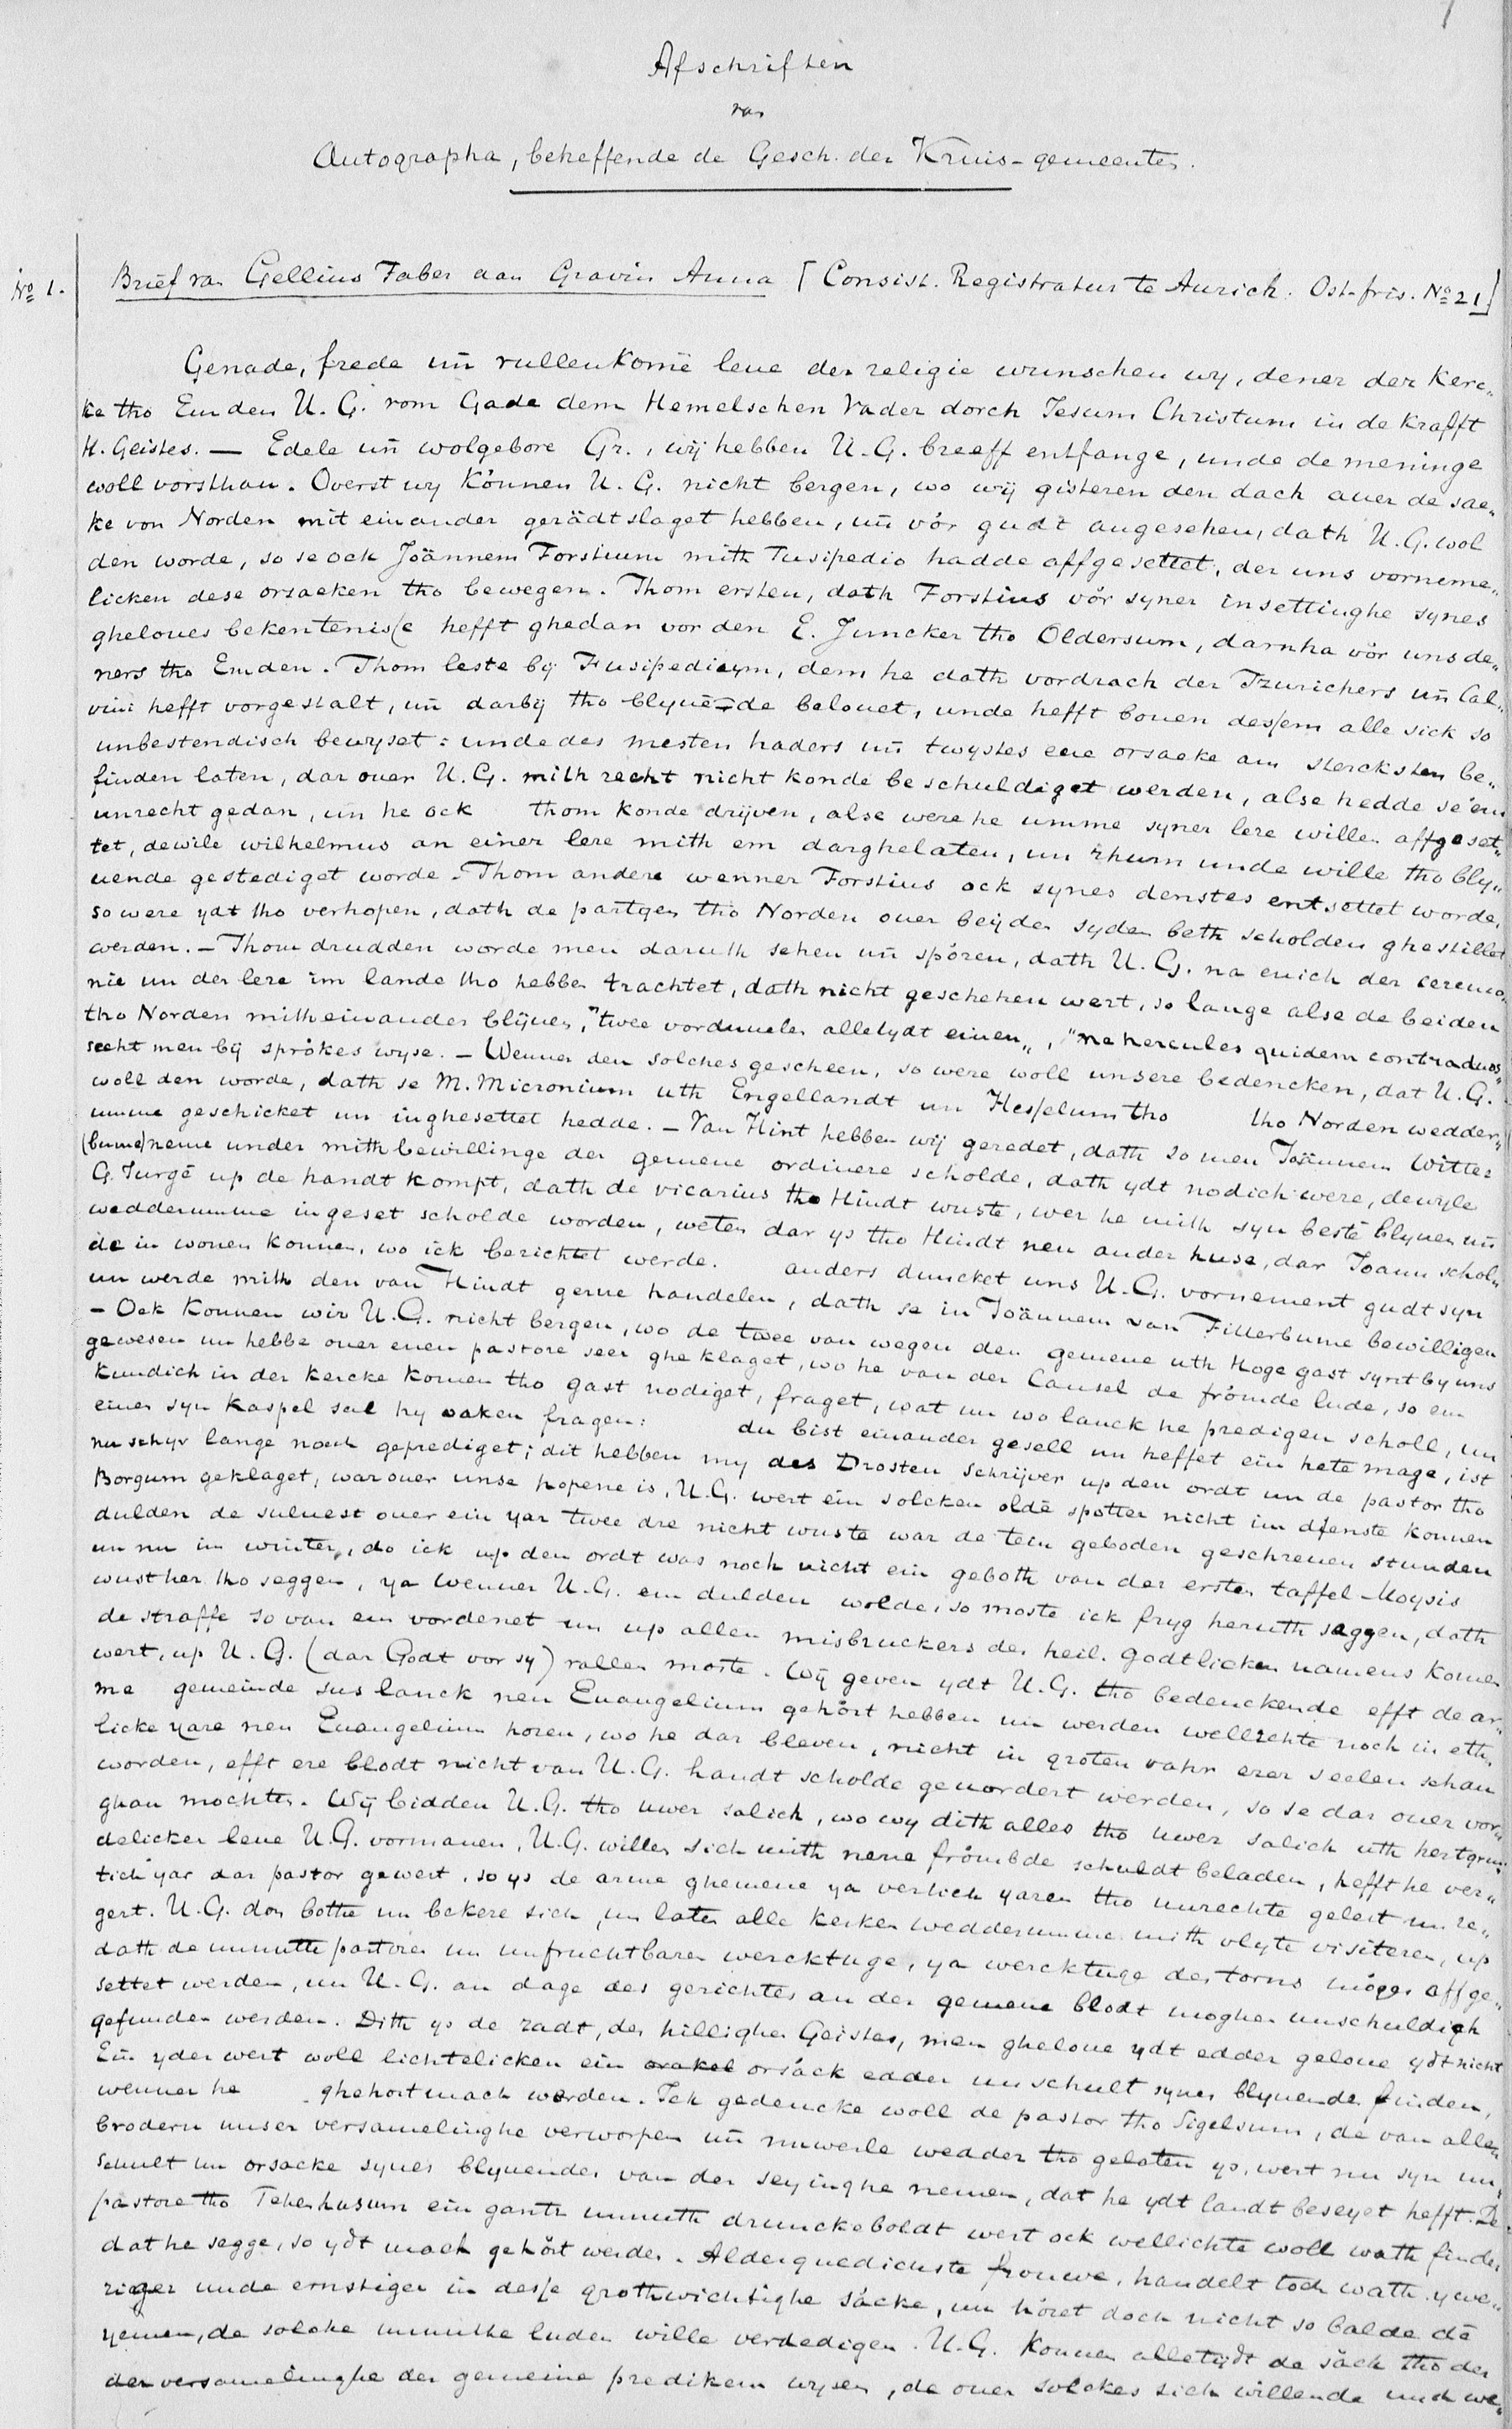 1
Afschriften
van
Autographa, betreffende de Gesch. der Kruis-gemeenten.
No 1. Brief van Gellius Faber aan Gravin Anna [Consist. Registratur te Aurich. Ost-fris. No 21]
Genade, frede uñ vullenkomē leue der religie wunschen wy, dener der Kerc„
ke tho Emden U. G. vom Gade dem Hemelschen Vader dorch Jesum Christum in de Krafft
H. Geistes. — Edele uñ wolgebore Gr., wij hebben U. G. breeff entfange, unde de meninge
woll vorsthan. Overst wy Können U. G. nicht bergen, wo wij gisteren den dach auer de sae„
ke von Norden mit einander gerädtslaget hebben, uñ vör gudt angesehen, dath U. G. wol
den worde, so se ock Joännem Forstium mith Tusipedio hadde affgesettet, der uns vorneme„
licken dese orsaeken tho bewegen. Thom ersten, dath Forstius vör syner insettinghe synes
gheloues bekentenisse hefft ghedan vor den E. Juncker tho Oldersum, darnha vör uns de„
ners tho Emden. Thom leste by Fusipedieym, dem he dath vordrach der Tzurichers uñ Cal„
vini hefft vorgestalt, uñ darbij tho blyuēde belouet, unde hefft bouen dessem alle sick so
unbestendisch bewyset: unde des mesten haders uñ twystes ene orsaeke am stercksten be„
finden laten, dar ouer U. G. mith recht nicht konde beschuldiget werden, alse hedde se em
unrecht gedan, un he ock thom konde drijven, alse were he umme syner lere willen affgeset„
tet, dewile wilhelmus an einer lere mith em darghelaten, un rhum unde wille tho bly„
uende gestediget worde. Thom andere wenner Forstius ock synes denstes entsettet worde,
so were ydt tho verhopen, dath de partyen tho Norden ouer beyden syden beth scholden ghestillet
werden. — Thom drudden worde men daruth sehen uñ spören, dath U. G. na enich der ceremo„
nie un der lere im lande tho hebben trachtet, dath nicht geschehen wert, so lange alse de beiden
tho Norden mith einander blijuen, "twee vorduuelen alletydt einen„, "ne hercules quidem contra duos„
secht men bij sprökes wyse. — Wenner den solches gescheen, so were woll unsere bedencken, dat U. G.
woll den worde, dath se M. Micronium uth Engellandt un Hesselum tho tho Norden wedder„
umme geschicket un inghesettet hedde. — Van Hint hebben wij geredet, dath so men Joännem Witter
(bume) neme under mith bewillinge der gemene ordinere scholde, dath ydt nodich were, dewyle
G. Jurgē up de handt kompt, dath de vicarius tho Hindt wuste, wer he mith syn bestē blyuen uñ
weddderumme ingeset scholde worden, weten dar ys tho Hindt nen ander huse, dar Joann schol„
de in wonen konnen, wo ick berichtet werde. anders duncket uns U. G. vornement gudt syn
un werde mith den van Hindt gerne handelen, dath se in Joännem van Fillerbume bewilligen
— Ock Konnen wir U. G. nicht bergen, wo de twee van wegen den gemene uth Hoge gast synt by uns
gewesen un hebbe ouer enen pastore seer gheklaget, wo he van der Cansel de frömde lude, so em
kundich in der kercke komen tho gast nodiget, fraget, wat un wo lanck he predigen scholl, un
einer syn Kaspel sal hy vaken fragen: du bist einander gesell un heffet ein hete mage, ist
nu schyr lange noch geprediget; dit hebben my des Drosten schrijver up den ordt un de pastor tho
Borgum geklaget, war ouer unse hopene is, U. G. wert ein solcken oldē spotter nicht im dienste konnen
dulden de suluest ouer ein yar twee dre nicht wuste war de tein geboden geschreuen stunden
un nu im winter, do ick up den ordt was noch nicht ein geboth van der ersten taffel Moysis
wust her tho seggen, ya wenner U. G. em dulden wolde, so moste ick fryg heruth seggen, dath
de straffe so van em vordenet un up allen misbruckers des heil. godtlicken namens komen
wert, up U. G. (dar Godt vor sy) vallen moste. Wij geven ydt U. G. tho bedenckende efft de ar„
me gemeinde sus lanck nen Euangelium gehört hebben un werden wellichte noch in eth„
licke yare nen Euangelium horen, wo he dar bleven, nicht in groten vahr erer seelen schan
worden, efft ere blodt nicht van U. G. handt scholde geuordert werden, so se dar ouer vor„
ghan mochten. Wij bidden U. G. tho uwer salich, wo wy dith alles tho uwer salich uth hertgrun„
delicker leue U. G. vormanen, U. G. willen sich mith nene frömbde schuldt beladen, hefft he ver„
tich yar dar pastor gewest, so ys de arme ghemene ya vertich yaren tho unrechte geleit un re„
gert. U. G. don bothe un bekere sich, un laten alle kerken wedderumme mith vlyte visiteren, up
dath de unnutte pastoren un unfruchtbaren wercktuge, ya wercktuge des torns mögen affge„
settet werden, un U. G. an dage des gerichtes an der gemene blodt moghen unschuldigh
gefunden werden. Dith ys de radt, des hillighen Geistes, men gheloue ydt edder geloue ydt nicht
Ein yder wert woll lichtelicken ein orsäck edder unschult synes blyuendes finden,
wenner he ghehort mach worden. Ick gedencke woll de pastor tho Sigelsum, de van allen
brodern unser versamelinghe verworpen uñ nuwerle wedder tho gelaten ys, wert nu syn un„
schult un orsacke synes blyuendes van der seyinghe nemen, dat he ydt landt beseyet hefft. De
pastore tho Tehenhusum ein gantz unnuth drunckeboldt wert ock wellichte woll wath finden
dat he segge, so ydt mach gehört werden. Alderguedichste frouwe, handelt toch wath ywe„
riger unde ernstiger in desse grothwichtighe säcke, un höret doch nicht so balde dē
yemen, de solcke unnutte luden wille verdedigen. U. G. Konnen alletydt de säck tho der
der versamelinghe der gemeine predikern wysen, de ouer solckes sich willende und we„